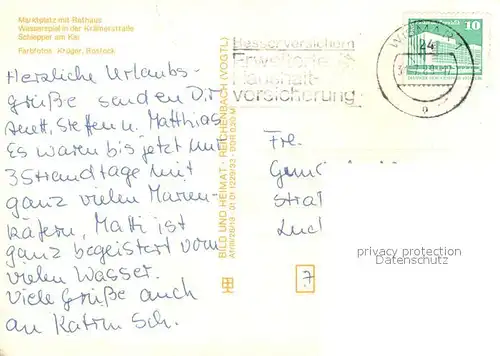 Marktplatz mit Rathaus
Wasserspiel in der Krämerstraße
Schlepper am Kai
Farbfotos: Krüger, Rostock
Herzliche Urlaubs-
grüße senden Dir
Anett, Steffen u. Matthias.
Es waren bis jetzt nur
3 Strandtage mit
ganz vielen Marien-
käfern, Matti ist
ganz begeistert vom
vielen Wasser.
Viele Grüße auch
an Katrin Sch.
BILD UND HEIMAT · REICHENBACH (VOGTL)
Besser versichern
Erweiterte
Haushalt-
versicherung
WISMAR 1
24
10
Frl.
privacy protection
Datenschutz
7